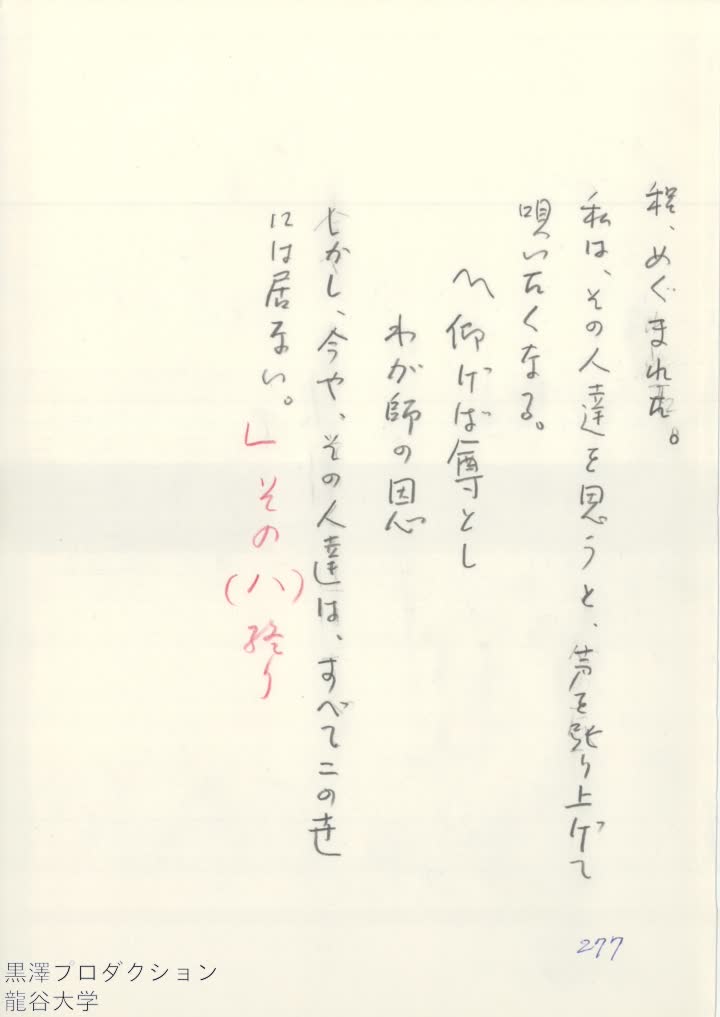 程、めぐまれた。
私は、その人達を思うと、声を張り上げて
唄いたくなる。
〽仰げば尊とし
わが師の恩
しかし、今や、その人達は、すべてこの世
には居ない。
」その(八)終り
277
黒澤プロダクション
龍谷大学